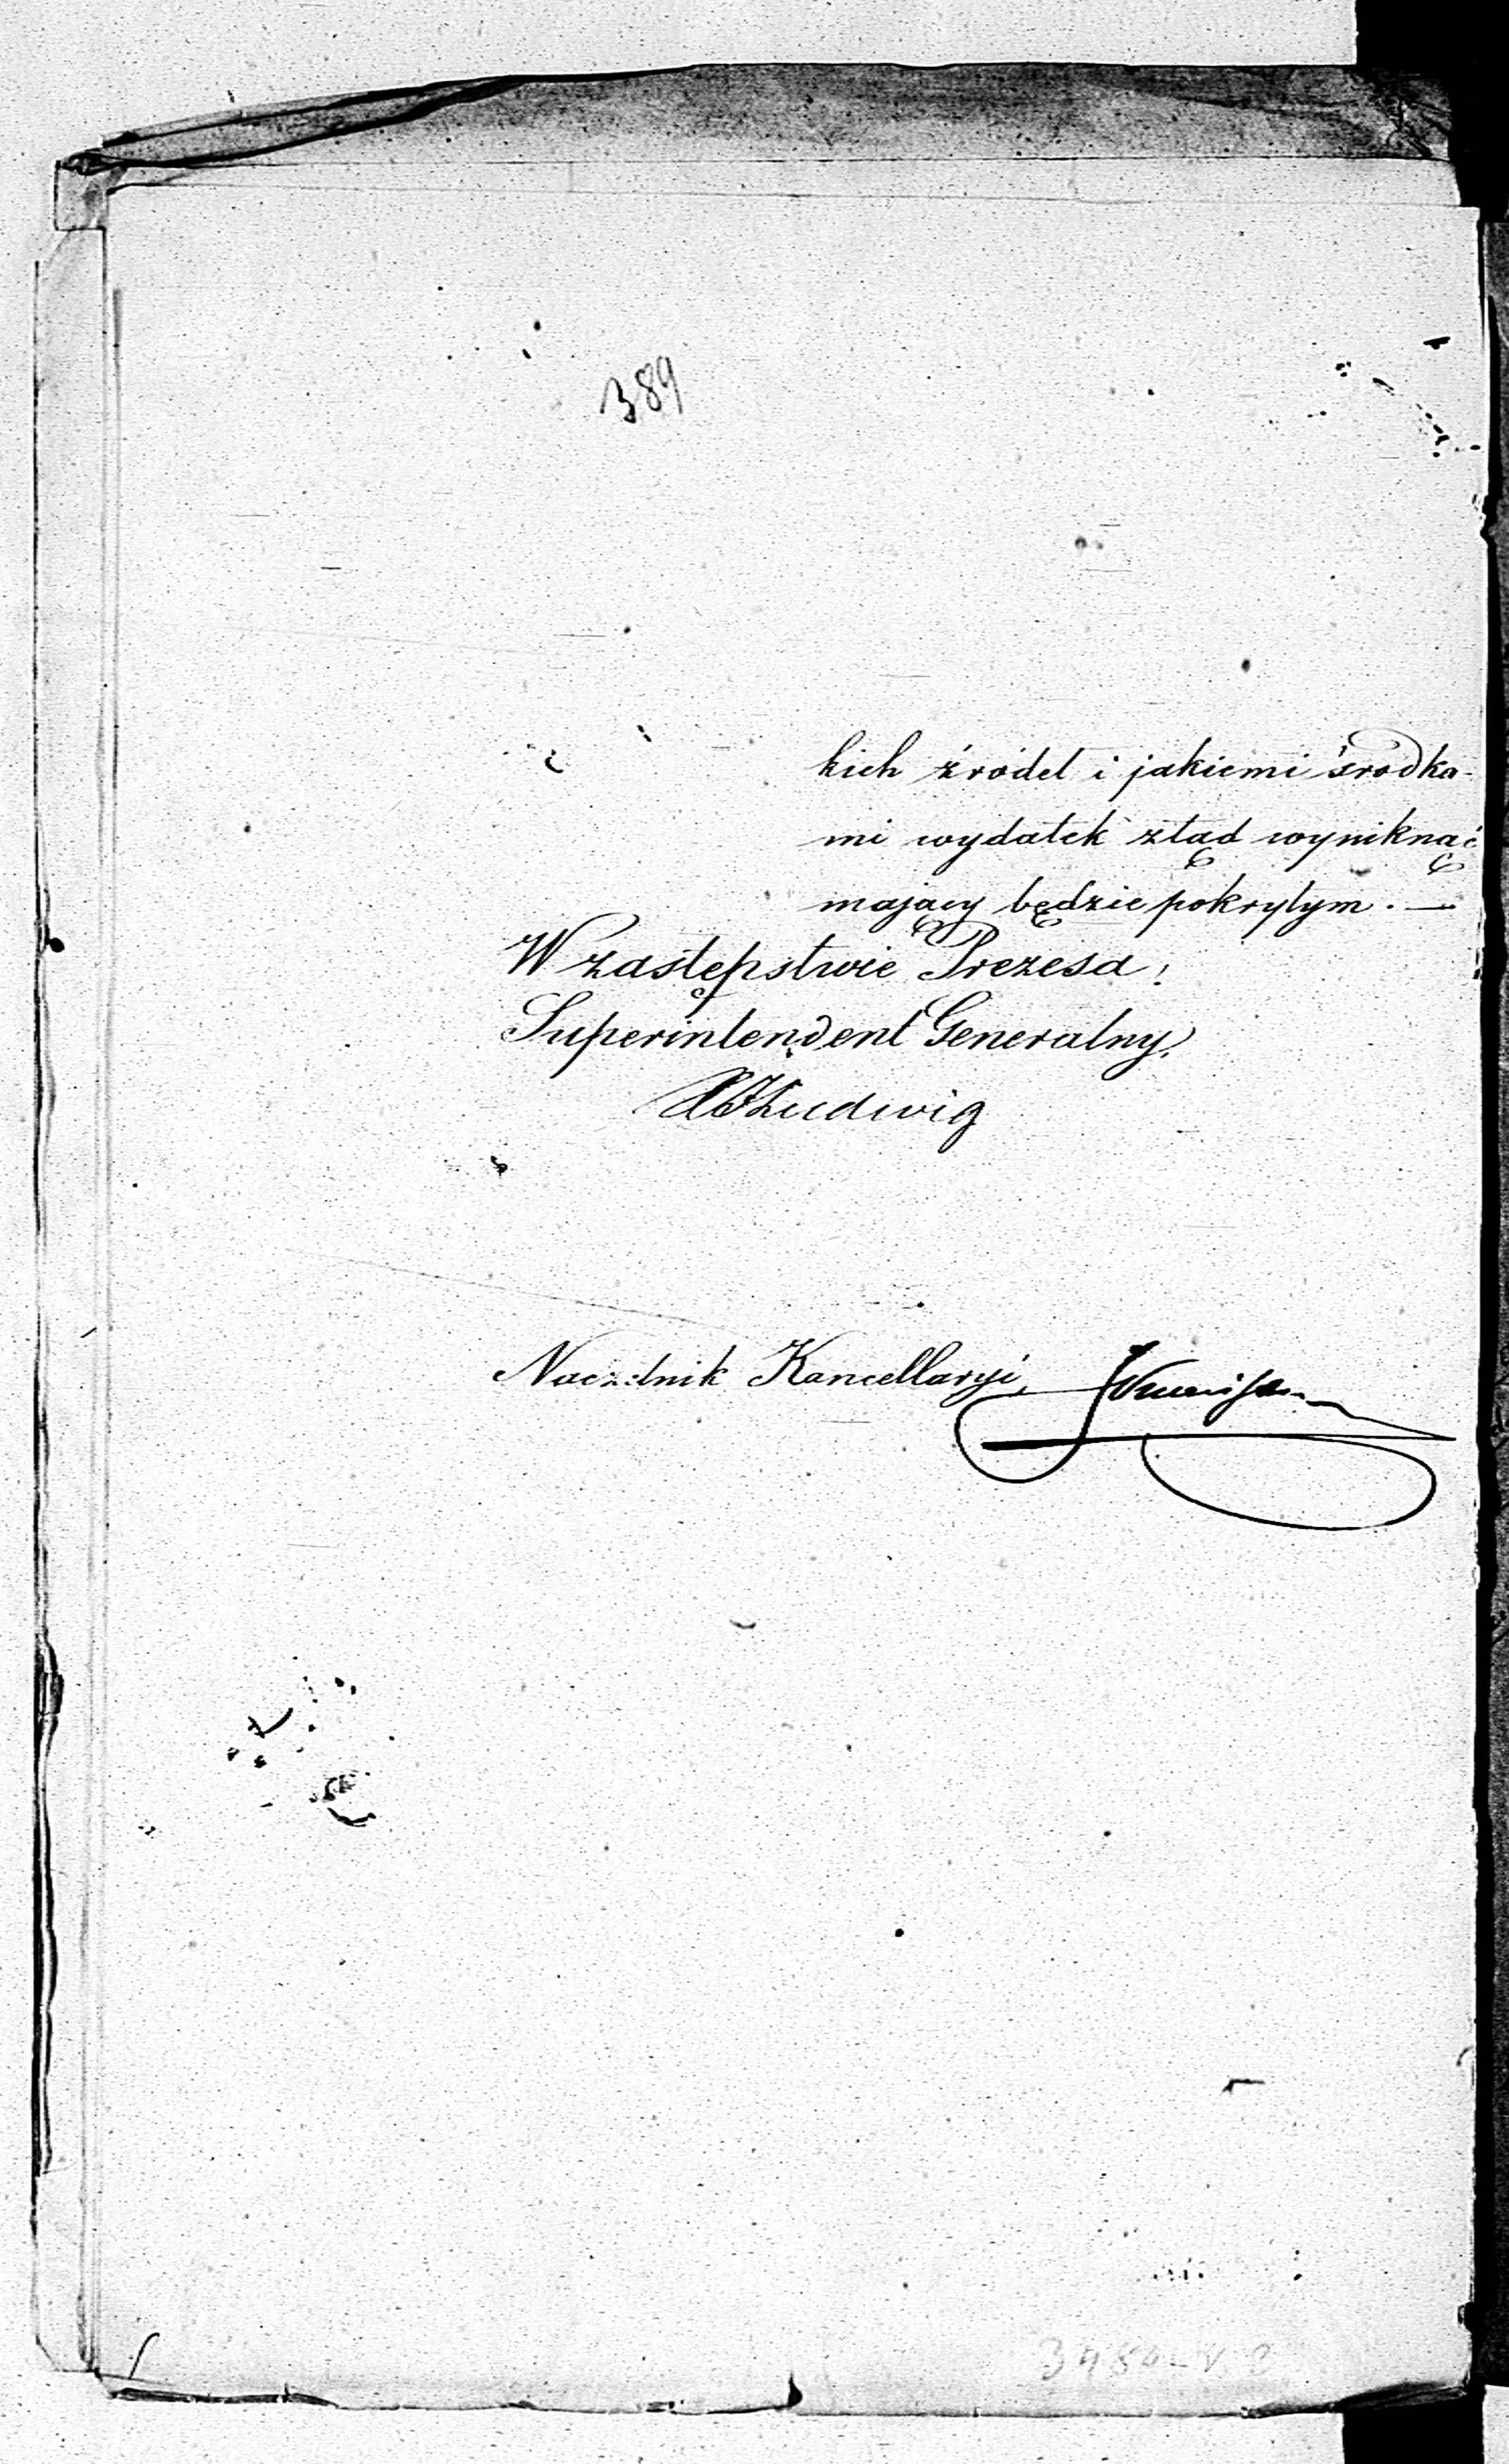 389
kich źródeł i jakiemi środka-
mi wydatek ztąd wyniknąć
mający będzie pokrytym. —
W zastępstwie Prezesa,
Superintendent Generalny,
Ludwig
Naczelnik Kancellaryi,